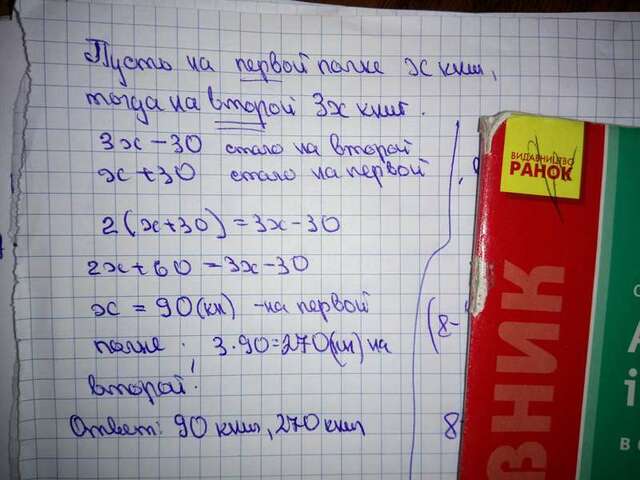 Пусть на первой полке x книг,
тогда на второй 3x книг.
3x - 30 стало на второй
x + 30 стало на первой
2(x+30) = 3x - 30
2x + 60 = 3x - 30
x = 90 (кн) - на первой
полке. 3·90 = 270 (кн) на
второй.
Ответ: 90 книг, 270 книг
(8-
8
ВИДАВНИЦТВО
РАНОК
ВНИК